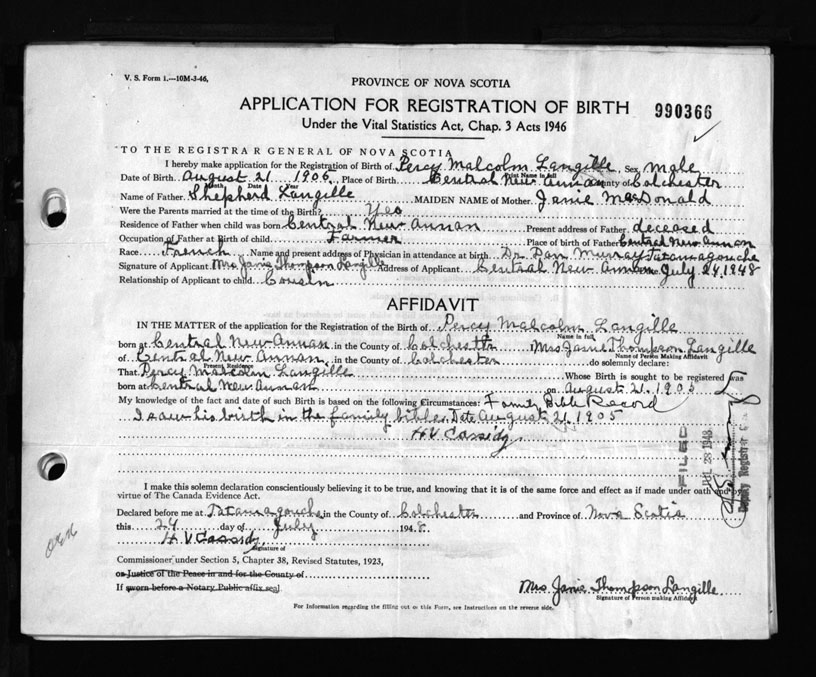 V. S. Form 1.—10M-3-46,
PROVINCE OF NOVA SCOTIA
APPLICATION FOR REGISTRATION OF BIRTH 990366
Under the Vital Statistics Act, Chap. 3 Acts 1946
TO THE REGISTRAR GENERAL OF NOVA SCOTIA
I hereby make application for the Registration of Birth of Percy Malcolm Langille, Sex Male
Print Name in full
Date of Birth August 21 1905, Place of Birth Central New Annan County of Colchester
Month Date Year
Name of Father Shepherd Langille MAIDEN NAME of Mother Janie McDonald
Were the Parents married at the time of the Birth? Yes
Residence of Father when child was born Central New Annan Present address of Father deceased
Occupation of Father at Birth of child Farmer Place of birth of Father Central New Annan
Race French Name and present address of Physician in attendance at birth Dr. Dan Murray Tatamagouche
Signature of Applicant Mrs Janie Thompson Langille Address of Applicant Central New Annan July 24, 1948
Relationship of Applicant to child Cousin
AFFIDAVIT
IN THE MATTER of the application for the Registration of the Birth of Percy Malcolm Langille
Name in full
born at Central New Annan in the County of Colchester Mrs Janie Thompson Langille
Name of Person Making Affidavit
of Central New Annan, in the County of Colchester do solemnly declare:
Present Residence
That Percy Malcolm Langille Whose Birth is sought to be registered was
born at Central New Annan on August 21, 1905
My knowledge of the fact and date of such Birth is based on the following Circumstances: Family Bible Record
I saw his birth in the family bible. Date August 21, 1905
H V Cassidy
FILED
JUL 28 1948
Deputy Registrar
I make this solemn declaration conscientiously believing it to be true, and knowing that it is of the same force and effect as if made under oath and by
virtue of The Canada Evidence Act.
Declared before me at Tatamagouche in the County of Colchester and Province of Nova Scotia
this 24 day of July 1948.
H. V Cassidy
Signature of
Commissioner under Section 5, Chapter 38, Revised Statutes, 1923,
or Justice of the Peace in and for the County of
If sworn before a Notary Public affix seal
Mrs Janie Thompson Langille
Signature of Person making Affidavit
For Information regarding the filling out of this Form, see Instructions on the reverse side.